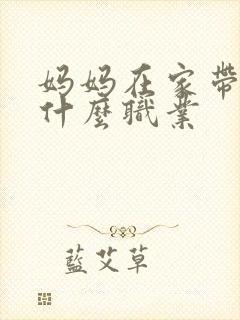 妈妈在家带
什麼職業
藍艾草